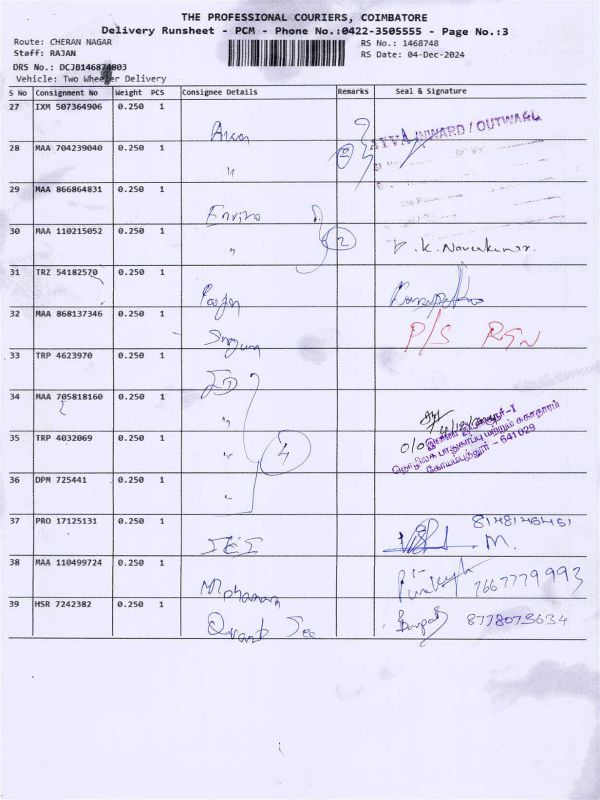 THE PROFESSIONAL COURIERS, COIMBATORE
Delivery Runsheet - PCM - Phone No.:0422-3505555 - Page No.:3
Route: CHERAN NAGAR RS No.: 1468748
Staff: RAJAN RS Date: 04-Dec-2024
DRS No.: DCJB146874803
Vehicle: Two Wheeler Delivery
S No Consignment No Weight PCS Consignee Details Remarks Seal & Signature
27 IXM 507364906 0.250 1
INWARD / OUTWARD
28 MAA 704239040 0.250 1 " 2
29 MAA 866864831 0.250 1
Enviro
30 MAA 110215052 0.250 1 " 2
K. Naveenkumar.
31 TRZ 54182570 0.250 1
32 MAA 868137346 0.250 1
P/S RTN
33 TRP 4623970 0.250 1
34 MAA 705818160 0.250 1 "
35 TRP 4032069 0.250 1 " 4
தொழிலக பாதுகாப்பு மற்றும் சுகாதாரம்
கோயம்புத்தூர் - 641029
36 DPM 725441 0.250 1 "
37 PRO 17125131 0.250 1
8148146451
M.
38 MAA 110499724 0.250 1
7667779993
39 HSR 7242382 0.250 1
8778073634